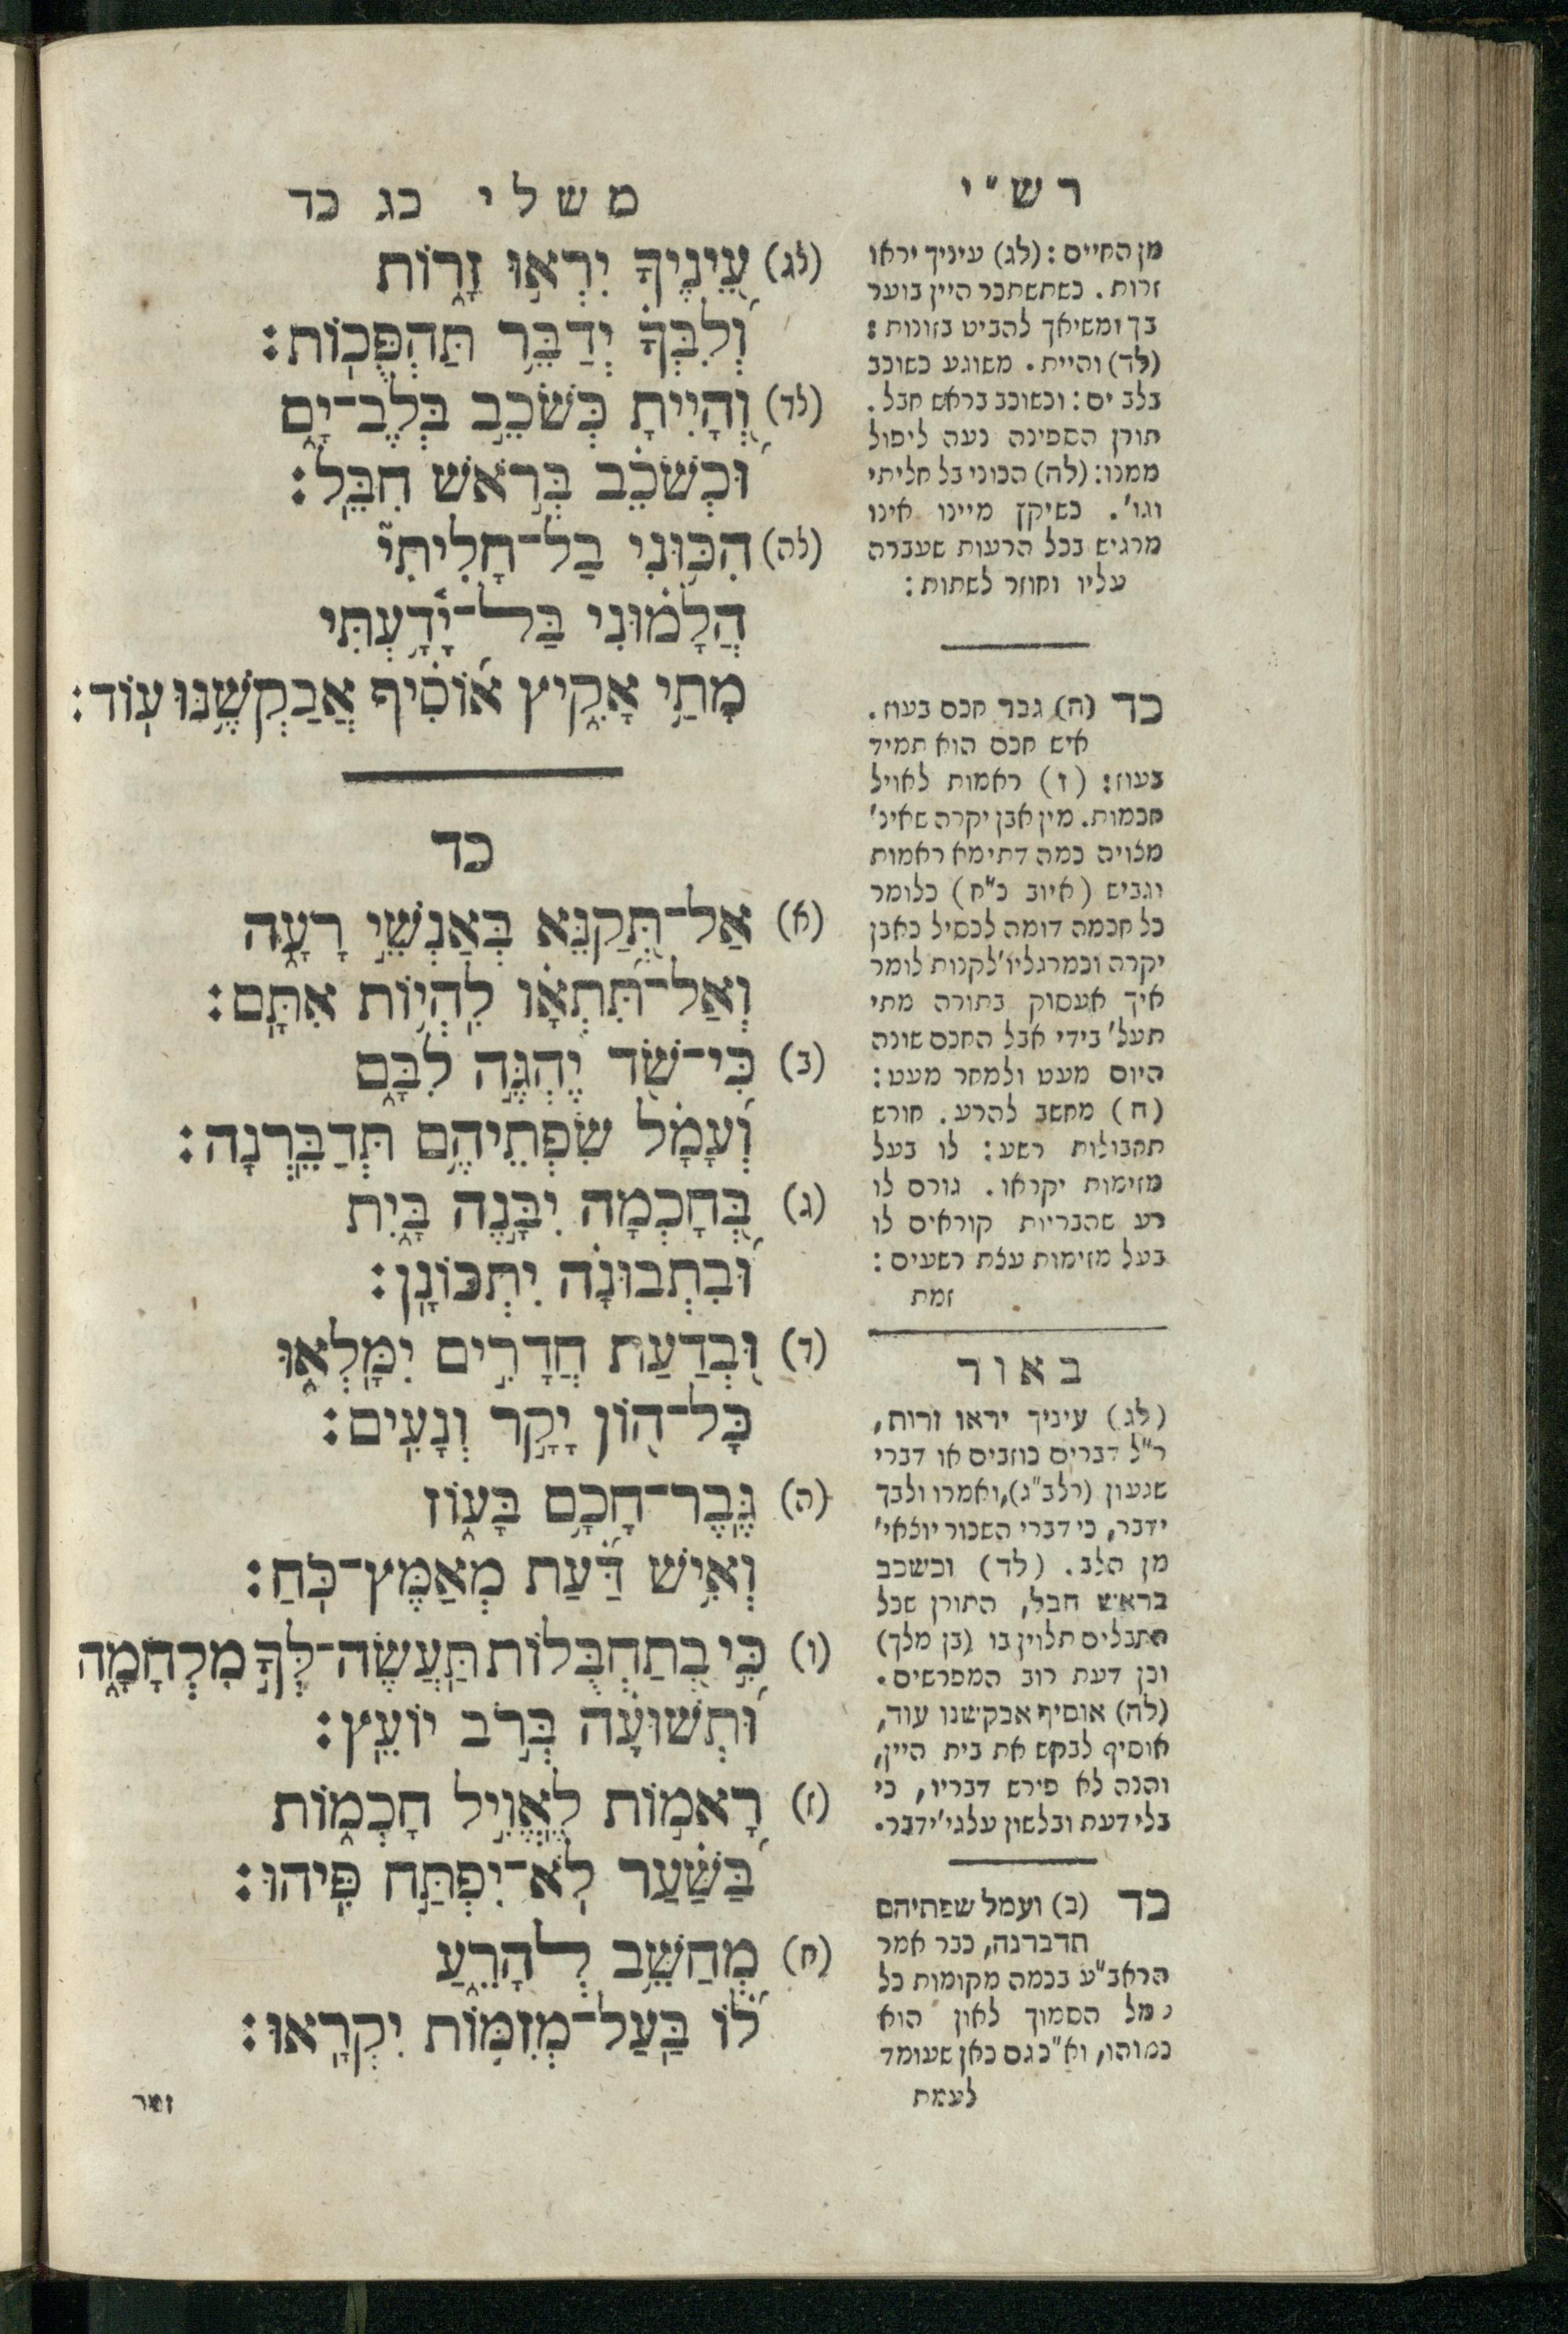 רש״י
מן החיים: (לג) עיניך יראו
זרות. כשתשתכר היין בוער
בך ומשיאך להביט בזונות:
(לד) והיית. משוגע כשוכב
בלב ים: וכשוכב בראש חבל.
תורן הספינה נעה ליפול
ממנו: (לה) הכוני בל חליתי
וגו'. כשיקן מיינו אינו
מרגיש בכל הרעות שעברה
עליו וחוזר לשתות:
כד (ה) גבר חכם בעוז.
איש חכם הוא תמיד
בעוז: (ז) ראמות לאויל
חכמות. מין אבן יקרה שאינ'
מצויה כמה דתימא ראמות
וגביש (איוב כ"ח) כלומר
כל חכמה דומה לכסיל כאבן
יקרה וכמרגליו' לקנות לומר
איך אעסוק בתורה מתי
תעל' בידי אבל החכם שונה
היום מעט ולמחר מעט:
(ח) מחשב להרע. חורש
תחבולות רשע: לו בעל
מזימות יקראו. גורם לו
רע שהבריות קוראים לו
בעל מזימות עצת רשעים:
זמת
באור
(לג) עיניך יראו זרות,
ר"ל דברים כוזבים או דברי
שגעון (רלב"ג), ואמרו ולבך
ידבר, כי דברי השכור יוצאי'
מן הלב. (לד) וכשכב
בראש חבל, התורן שכל
החבלים תלוין בו (בן מלך)
וכן דעת רוב המפרשים.
(לה) אוסיף אבקשנו עוד,
אוסיף לבקש את בית היין,
והנה לא פירש דבריו, כי
בלי דעת ובלשון עלגי' ידבר.
כד (ב) ועמל שפתיהם
תדברנה, כבר אמר
הראב"ע בכמה מקומות כל
עמל הסמוך לאון הוא
כמוהו, וא"כ גם כאן שעומד
לעמת
משלי כג כד
(לג) עֵ֭ינֶיךָ יִרְא֣וּ זָר֑וֹת
וְ֝לִבְּךָ֗ יְדַבֵּ֥ר תַּהְפֻּכֽוֹת׃
(לד) וְ֭הָיִיתָ כְּשֹׁכֵ֣ב בְּלֶב־יָ֑ם
וּ֝כְשֹׁכֵ֗ב בְּרֹ֣אשׁ חִבֵּֽל׃
(לה) הִכּ֥וּנִי בַל־חָלִיתִי֮
הֲלָמ֗וּנִי בַּל־יָ֫דָ֥עְתִּי
מָתַ֥י אָקִ֑יץ א֝וֹסִ֗יף אֲבַקְשֶׁ֥נּוּ עֽוֹד׃
כד
(א) אַל־תְּ֭קַנֵּא בְּאַנְשֵׁ֣י רָעָ֑ה
וְאַל־תִּ֝תְאָ֗ו לִהְי֥וֹת אִתָּֽם׃
(ב) כִּי־שֹׁ֭ד יֶהְגֶּ֣ה לִבָּ֑ם
וְ֝עָמָ֗ל שִׂפְתֵיהֶ֥ם תְּדַבֵּֽרְנָה׃
(ג) בְּ֭חָכְמָה יִבָּ֣נֶה בָּ֑יִת
וּ֝בִתְבוּנָ֗ה יִתְכּוֹנָֽן׃
(ד) וּ֭בְדַעַת חֲדָרִ֣ים יִמָּלְא֑וּ
כָּל־ה֖וֹן יָקָ֣ר וְנָעִֽים׃
(ה) גֶּֽבֶר־חָכָ֥ם בָּע֑וֹז
וְאִֽישׁ דַּ֝֗עַת מְאַמֶּץ־כֹּֽחַ׃
(ו) כִּ֣י בְ֭תַחְבֻּלוֹת תַּעֲשֶׂה־לְּךָ֣ מִלְחָמָ֑ה
וּ֝תְשׁוּעָ֗ה בְּרֹ֣ב יוֹעֵֽץ׃
(ז) רָאמ֣וֹת לֶאֱוִ֣יל חָכְמ֑וֹת
בַּ֝שַּׁ֗עַר לֹ֣א־יִפְתַּח פִּֽיהוּ׃
(ח) מְחַשֵּׁ֥ב לְהָרֵ֑עַ
ל֝֗וֹ בַּֽעַל־מְזִמּ֥וֹת יִקְרָֽאוּ׃
זמת